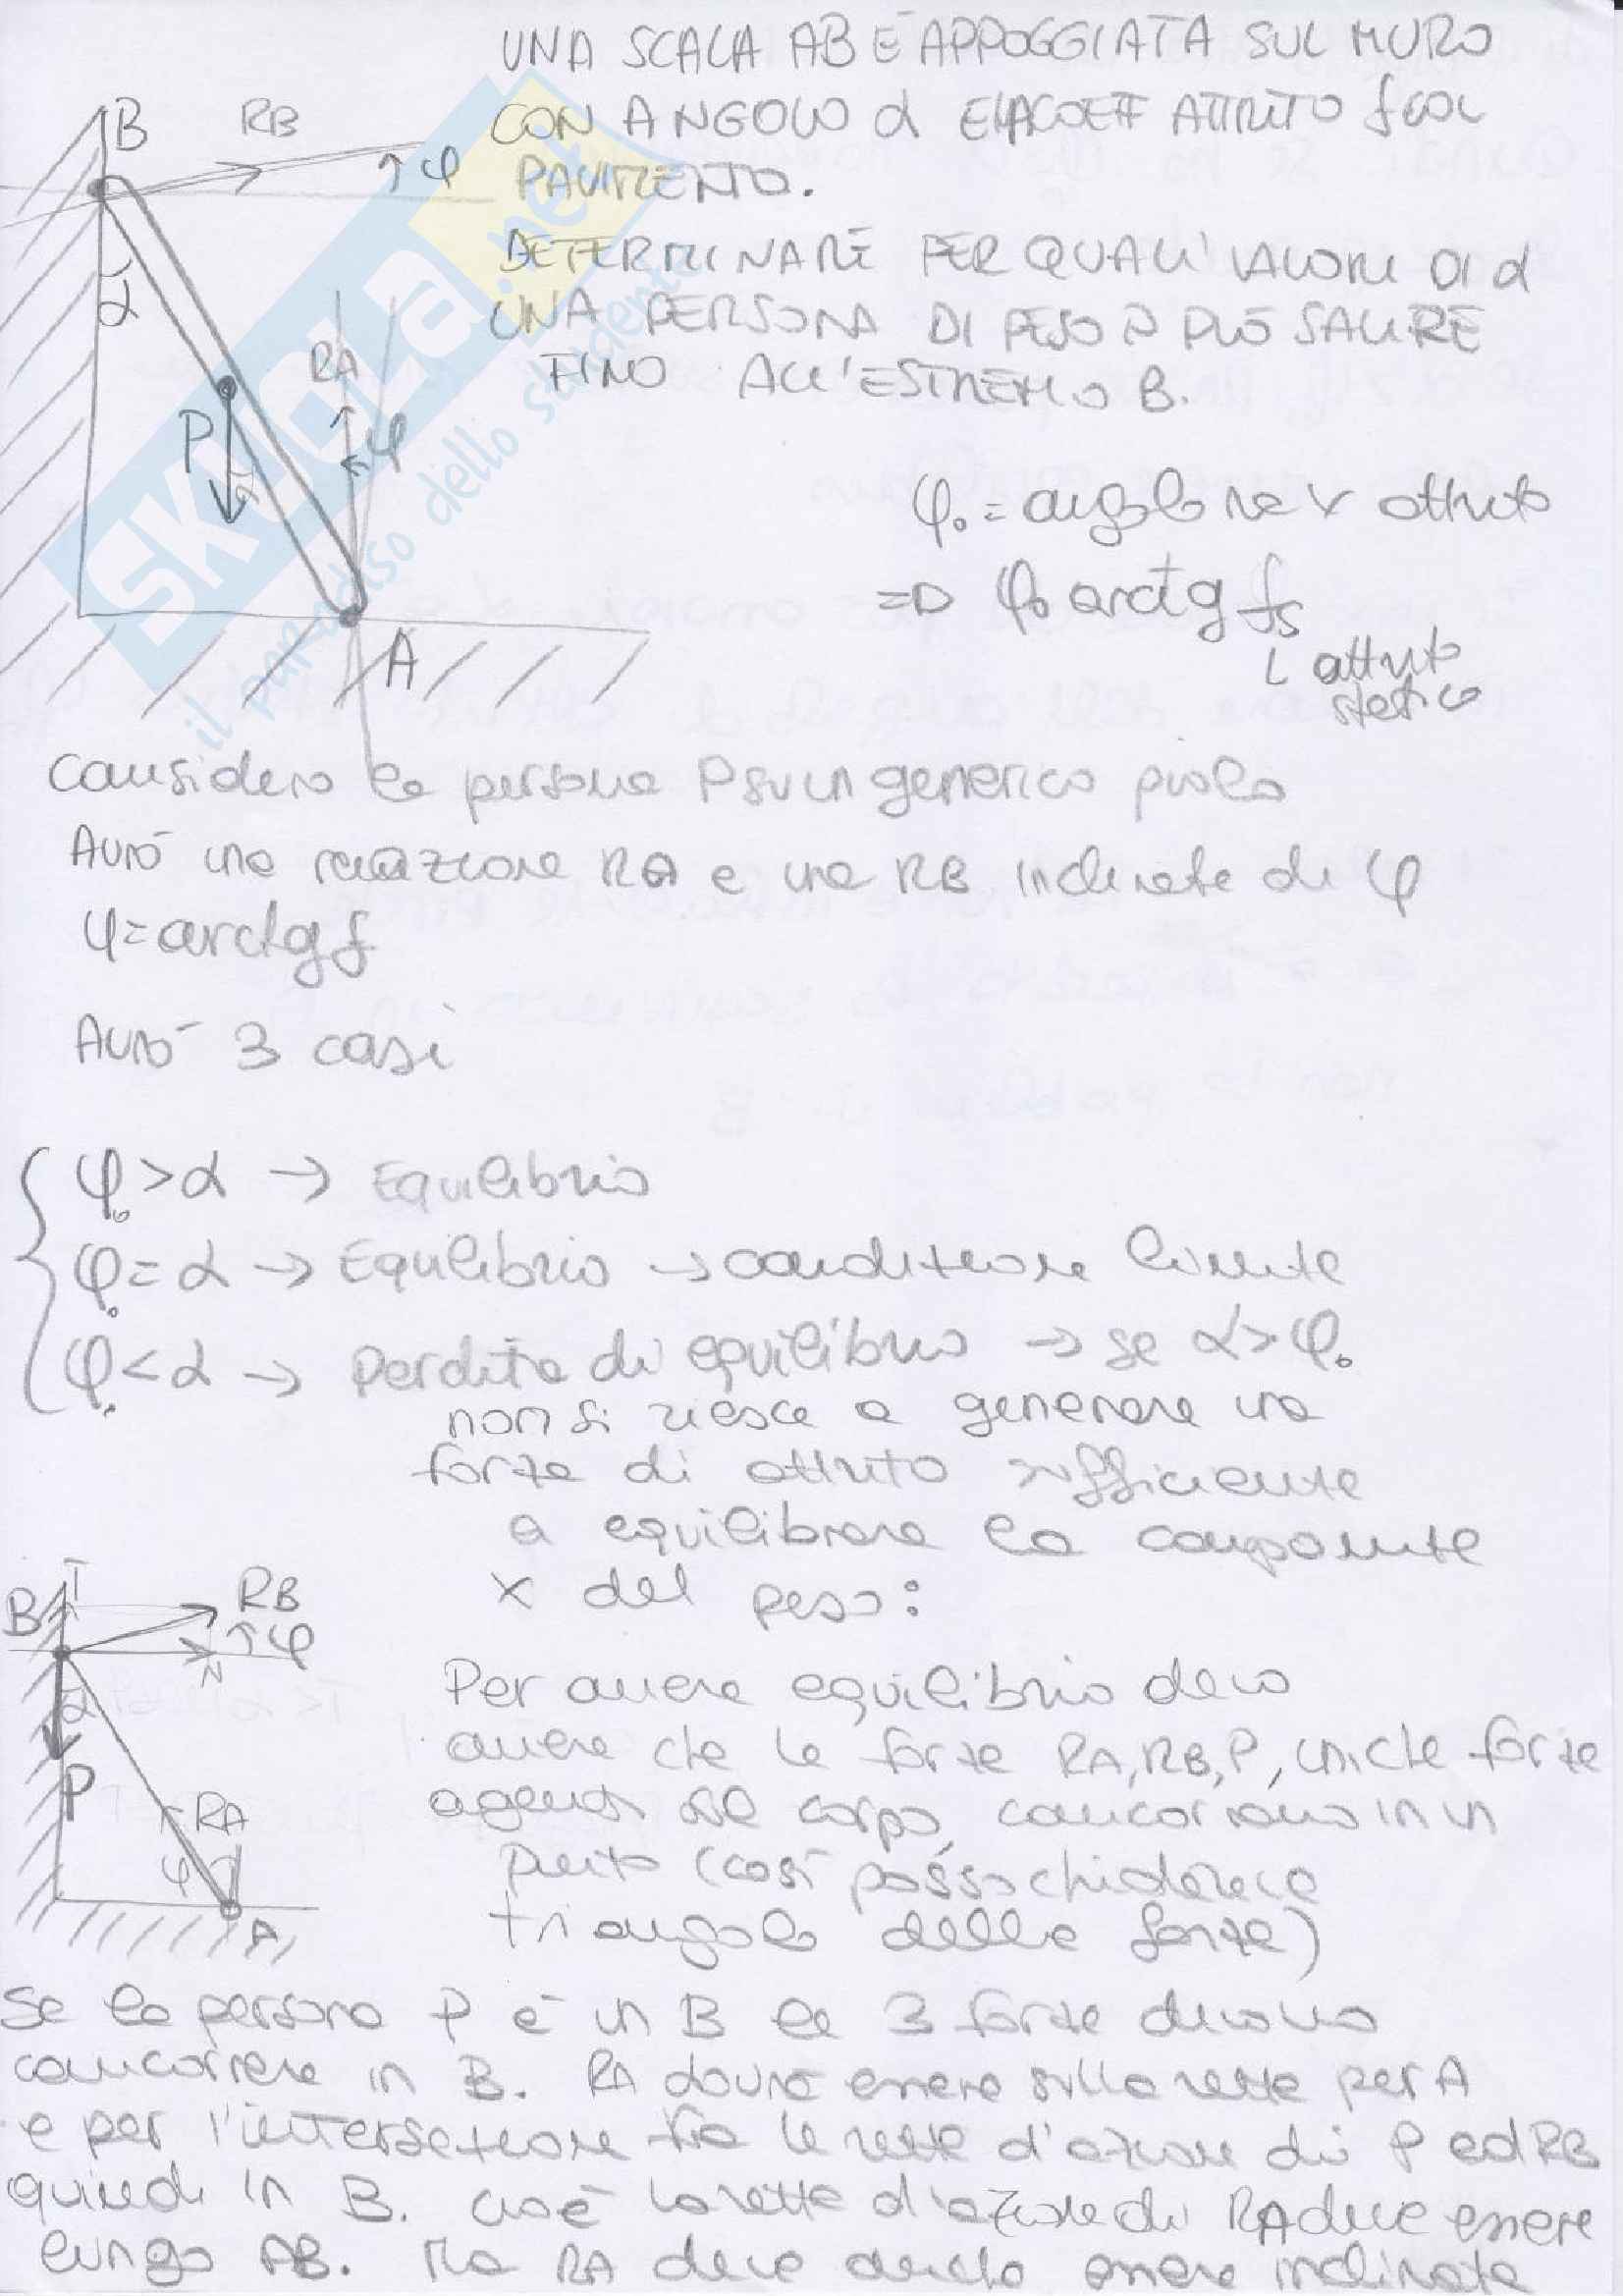 UNA SCALA AB E' APPOGGIATA SUL MURO
CON ANGOLO α E LA COEFF ATTRITO f COL
PAVIMENTO.
DETERMINARE PER QUALI VALORI DI α
UNA PERSONA DI PESO P PUÒ SALIRE
FINO ALL'ESTREMO B.
B
RB
φ
α
RA
φ
P
α
A
φ₀ = angolo max attrito
=D φ₀ arctg fs
L attrito
statico
SKUOLA.net
il paradiso dello studente
Considero la persona P su un generico piolo
Avrò una reazione RA e una RB inclinate di φ
φ = arctg f
Avrò 3 casi
φ₀ > α → Equilibrio
φ₀ = α → Equilibrio → condizione limite
φ₀ < α → Perdita di equilibrio → se α > φ₀
non si riesce a generare una
forza di attrito sufficiente
a equilibrare la componente
x del peso:
B T RB
φ
N
α
P
RA
φ
A
Per avere equilibrio devo
avere che le forze RA, RB, P, uniche forze
agenti sul corpo, concorrano in un
punto (così posso chiudere le
triangolo delle forze)
Se la persona P è in B le 3 forze devono
concorrere in B. RA dovrà essere sulla retta per A
e per l'intersezione tra le rette d'azione di P ed RB
quindi in B. Cioè la retta d'azione di RA deve essere
lungo AB. Ma RA deve anche essere inclinata